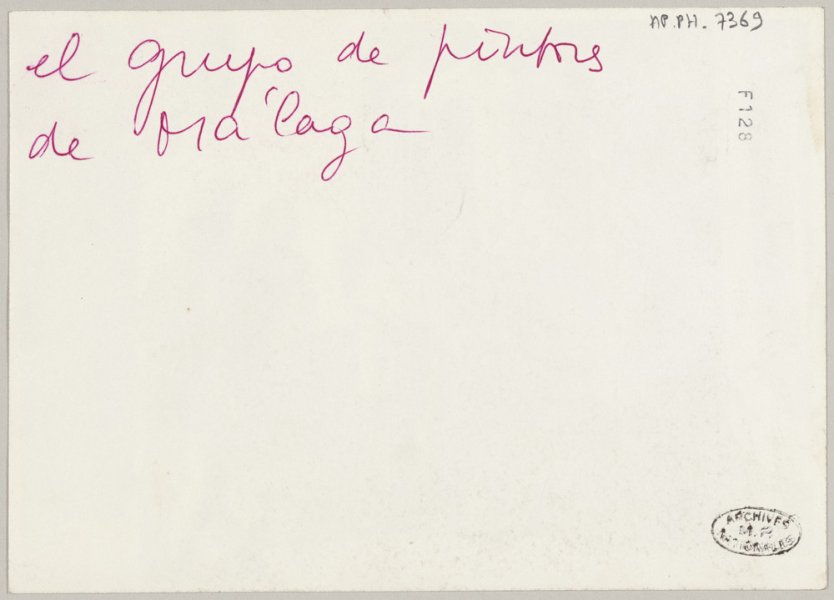 el grupo de pintores
de Málaga
AP.PH. 7369
F128
ARCHIVES
M.P.
NATIONALES